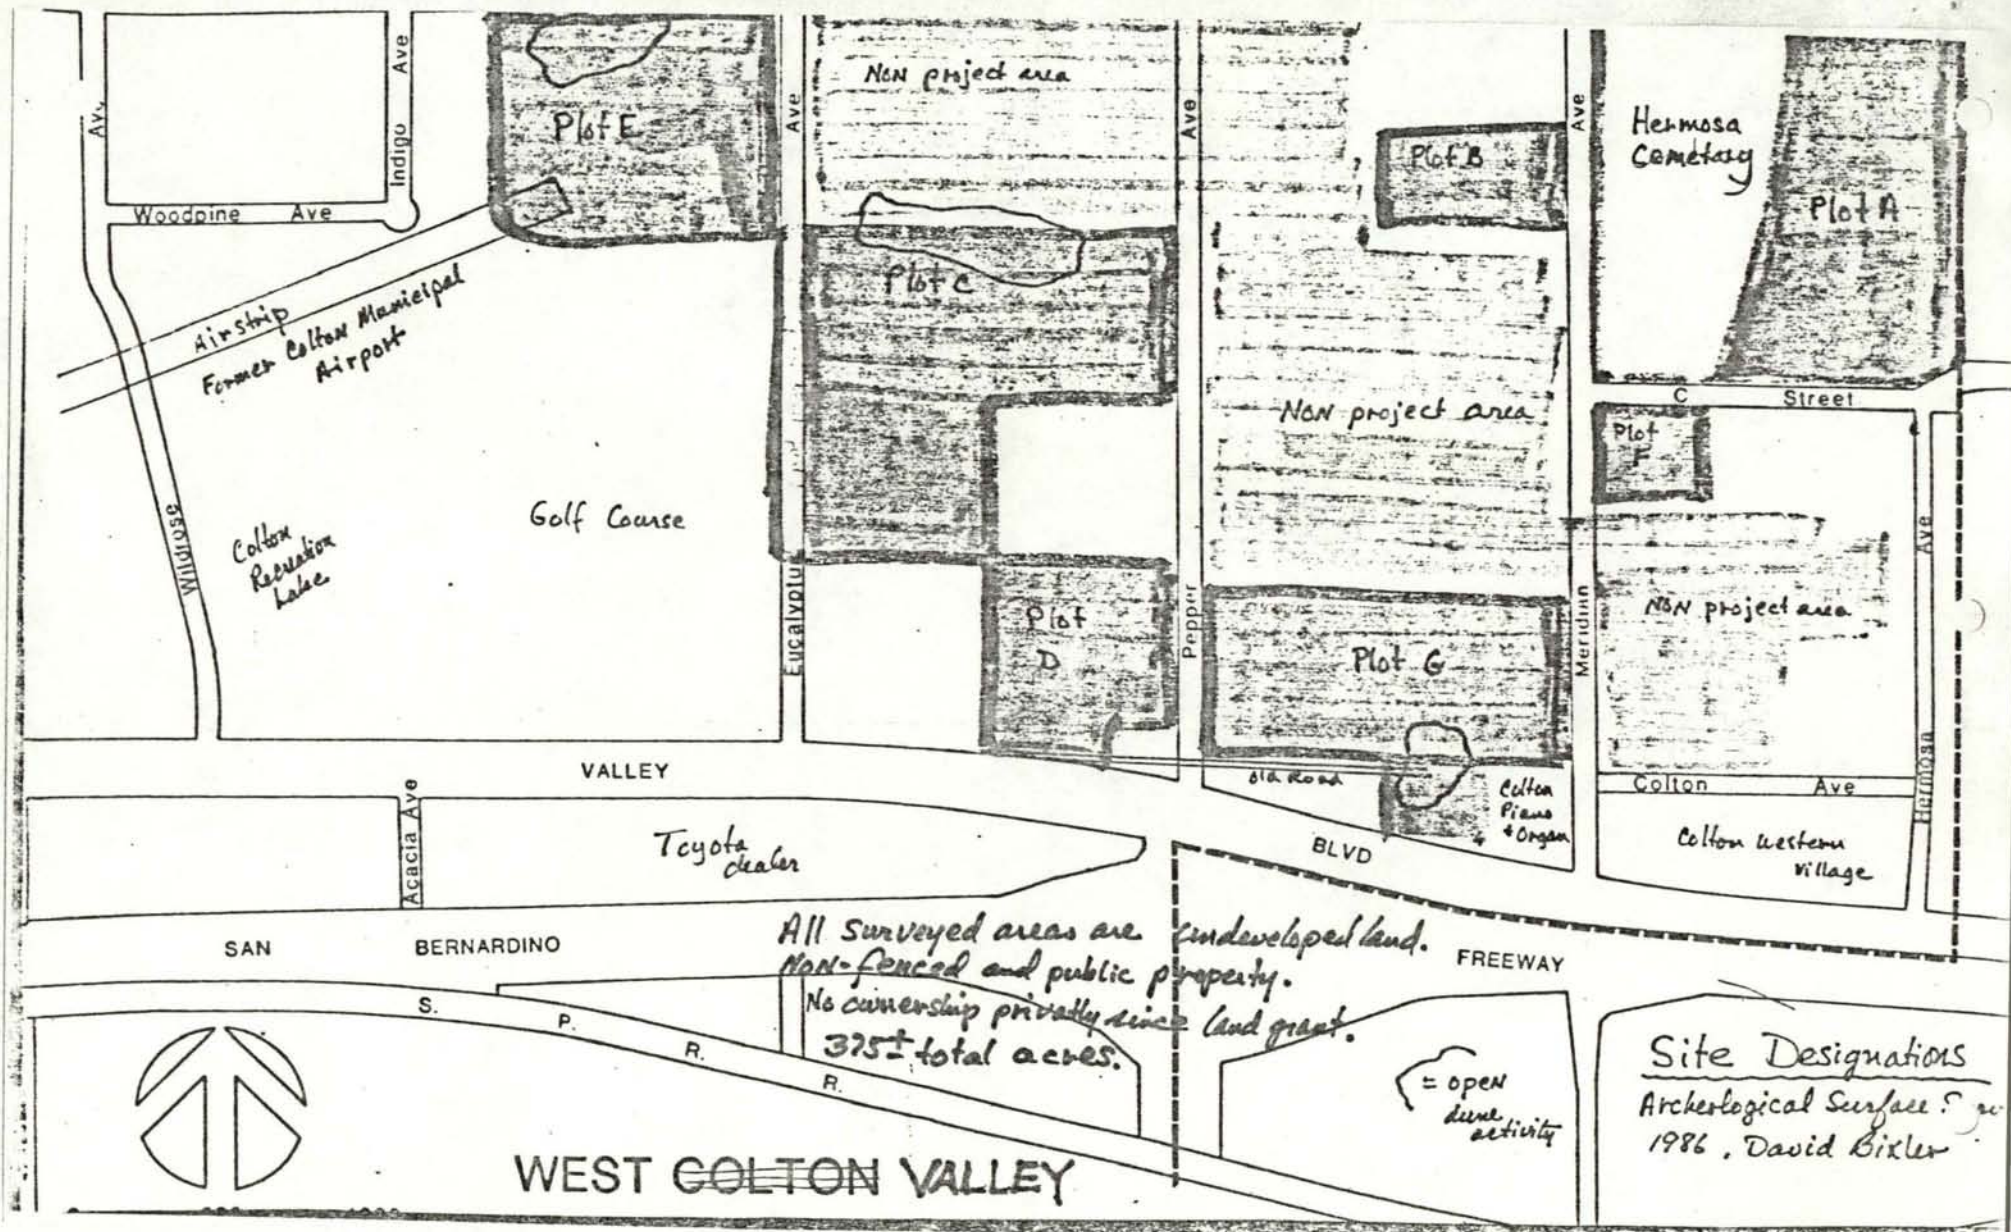 Av.
Indigo Ave
Woodpine Ave
Plot E
Ave
NON project area
Ave
Plot B
Ave
Hermosa
Cemetary
Plot A
Airstrip
Former Colton Municipal
Airport
Plot C
NON project area
C Street
Plot
Wildrose
Colton
Recreation
Lake
Golf Course
Eucalyptu
Plot
D
Pepper
Plot G
Meridian
NON project area
Ave
Hermosa
VALLEY
old Road
Colton
Piano
& Organ
Colton Ave
Acacia Ave
Toyota
dealer
BLVD
Colton western
village
SAN BERNARDINO
FREEWAY
All surveyed areas are undeveloped land.
NON-fenced and public property.
No ownership privatly since land grant.
375± total acres.
S. P. R. R.
= open
dune
activity
Site Designations
Archeological Surface
1986, David Bixler
WEST COLTON VALLEY